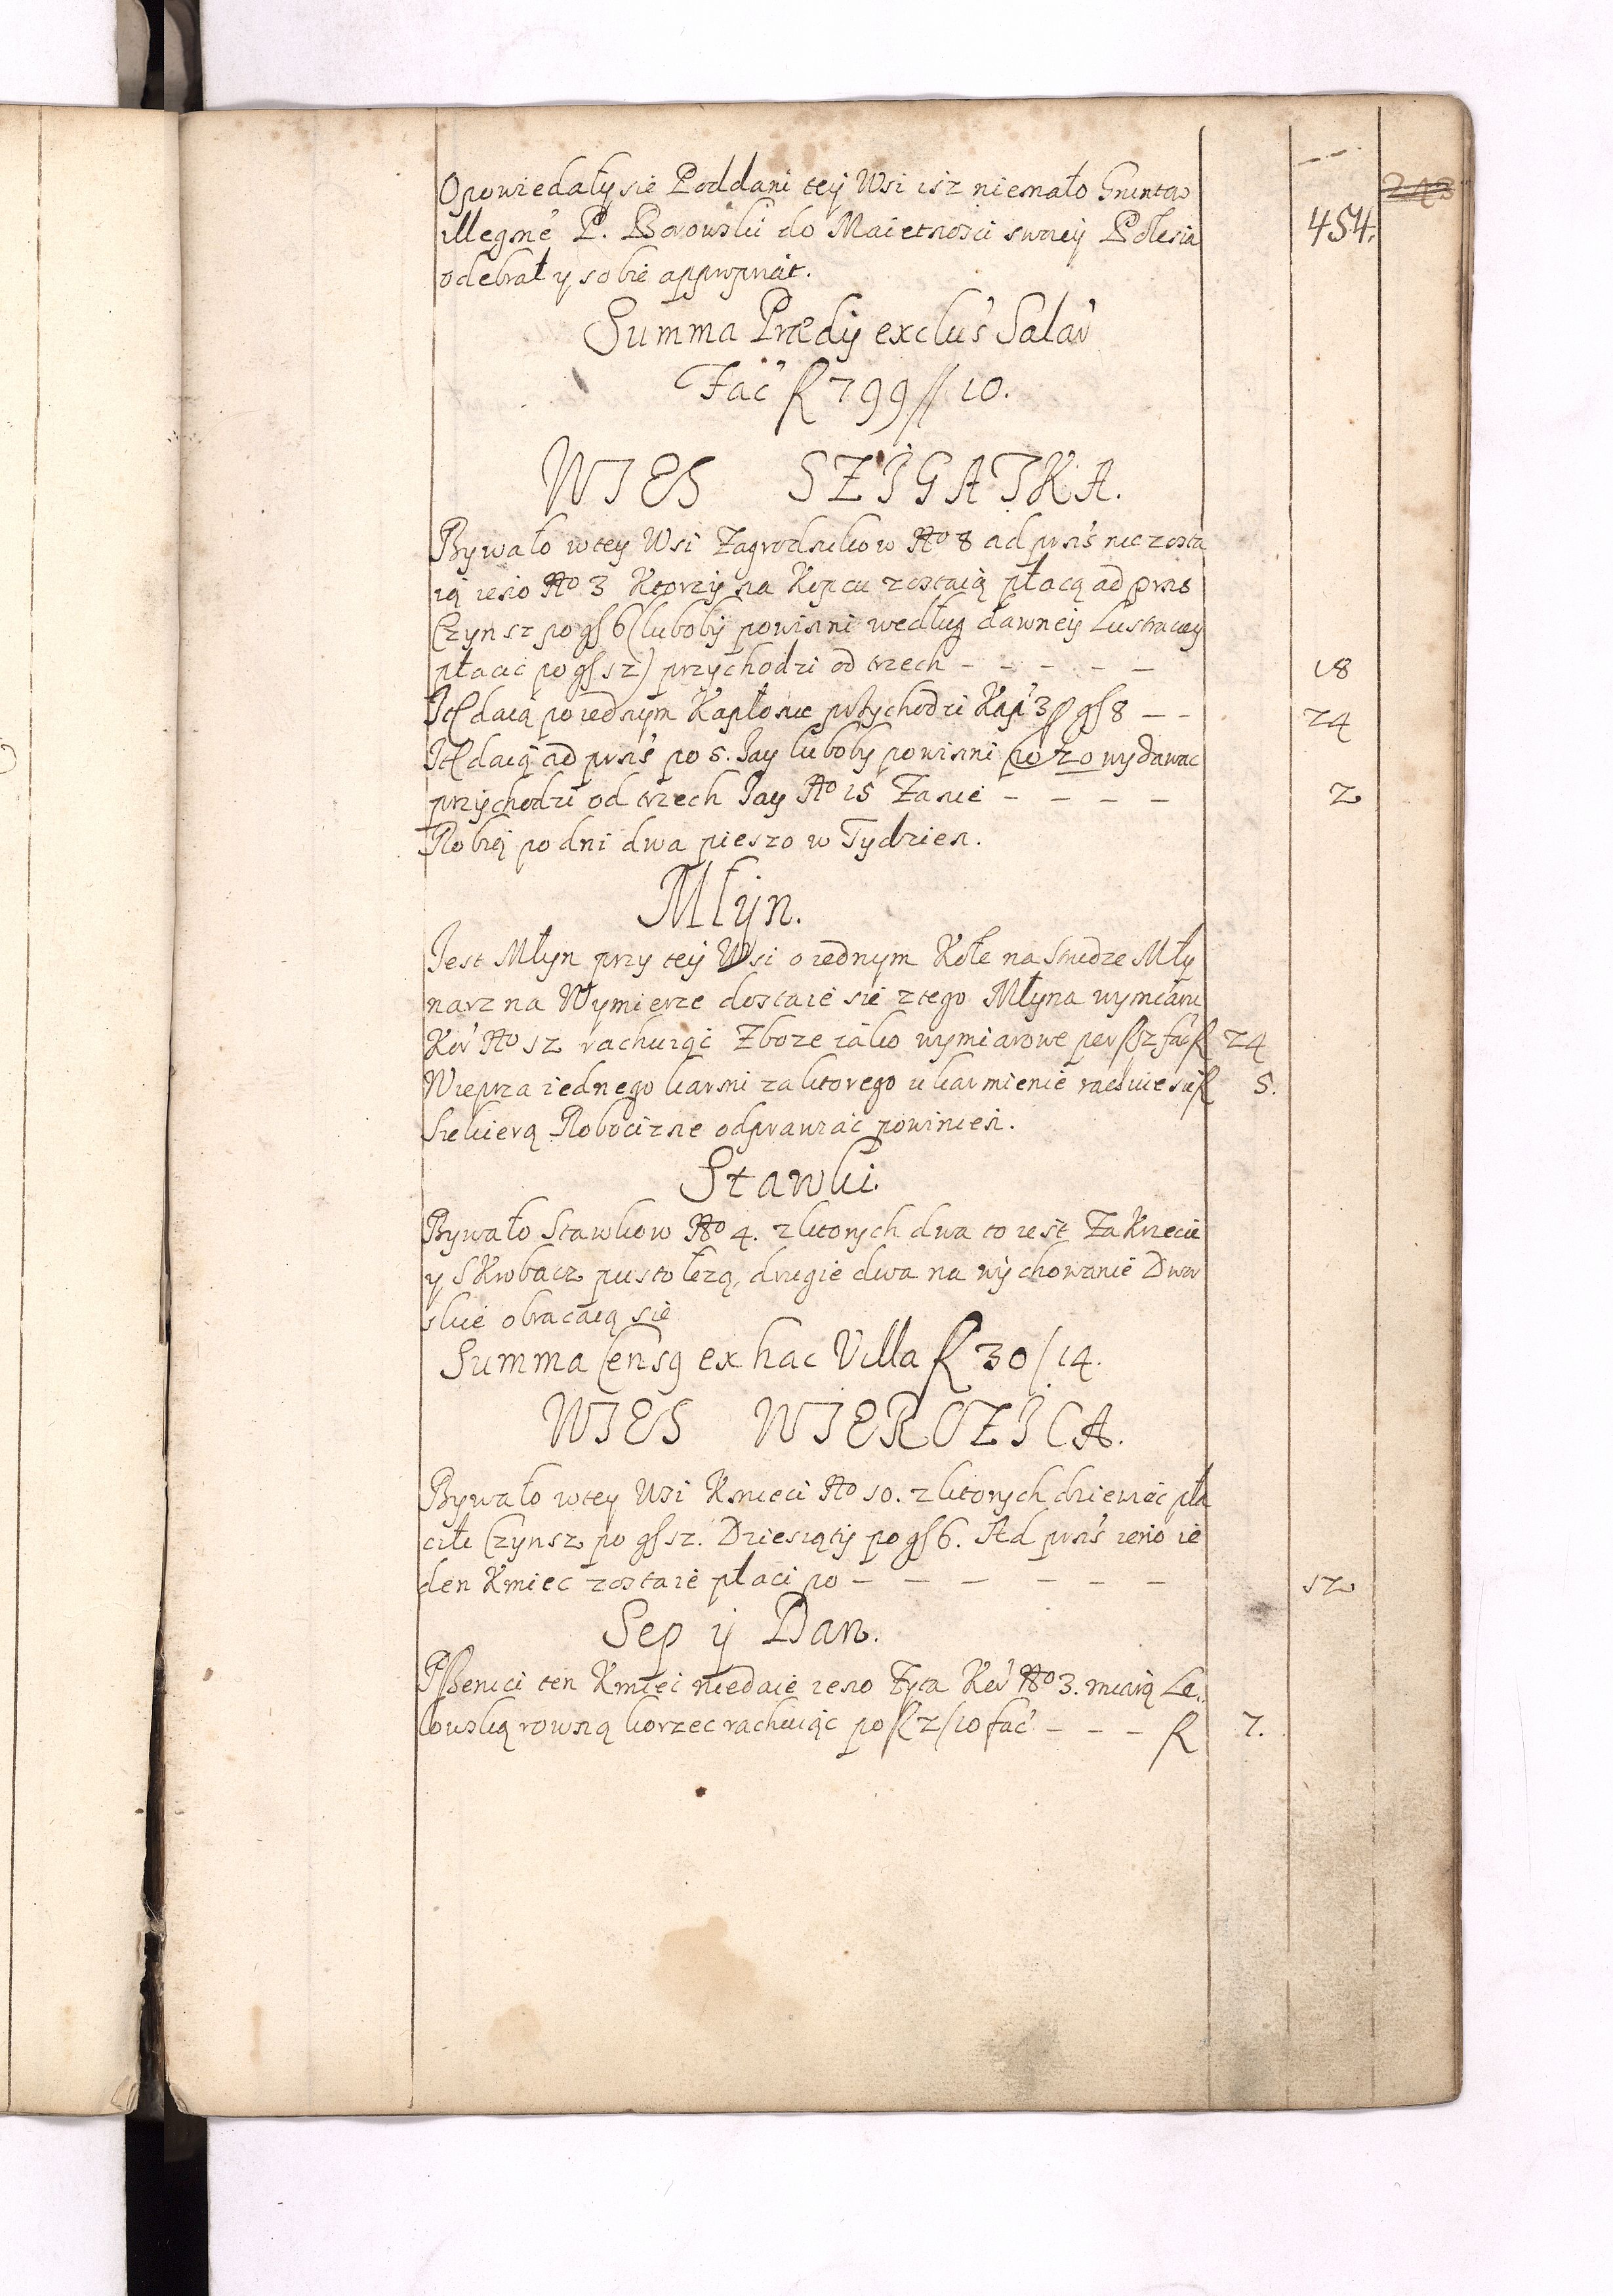 454.
Opowiedały sie Poddani tey Wsi isz niemało Gruntow
illegme P. Borowski do Maietnosci swoiey Polesia
odebrał y sobie appropriat.
Summa Prædij exclus Salar
Fac f 799 // 10.
WIES SZIGATKA.
Bywało wtey Wsi Zagrodnikow No 8 ad prns nie zosta
ią ieno No 3 Ktorzy na Kopcu zostaią płacą ad prns
Czynsz po gs 6 (luboby powinni według dawney Lustracey
płacic po gs 12) przychodzi od trzech - - - - - 18
It daią po iednym Kapłonie przychodzi Kap 3 p gs 8 - - 24
It daią ad prns po 5. Jay luboby powinni po 20 wydawac
przychodzi od trzech Jay No 15 Za nie - - - - 2
Robią po dni dwa pieszo w Tydzien.
Młyn.
Jest Młyn przy tey Wsi o iednym Kole na Strudze Mły
narz na Wymierze dostaie sie z tego Młyna wymiaru
Kor No 12 rachuiąc Zboze iako wymiarowe per f 2 fac f 24
Wieprza iednego karmi za ktorego ukarmienie rachuie sie f 5.
Siekierą Robocizne odprawiac powinien.
Stawki.
Bywało Stawkow No 4. z ktorych dwa to iest Zakrzecie
y Skrobacz pusto lezą, drugie dwa na wychowanie Dwor
skie obracaią sie
Summa Censq ex hac Villa f 30 / 14.
WIES WIERCZICA.
Bywało wtey Wsi Kmieci No 10. z ktorych dziewiec pła
cili Czynsz po gs 12. Dziesiąty po gs 6. Ad prns ieno ie
den Kmiec zostaie płaci po - - - - - - 12
Sep y Dan.
Pszenici ten Kmiec niedaie ieno Zyta Kor No 3. miarą Le-
lowską rowną korzec rachuiąc po f 2 / 10 fac - - - f 7.